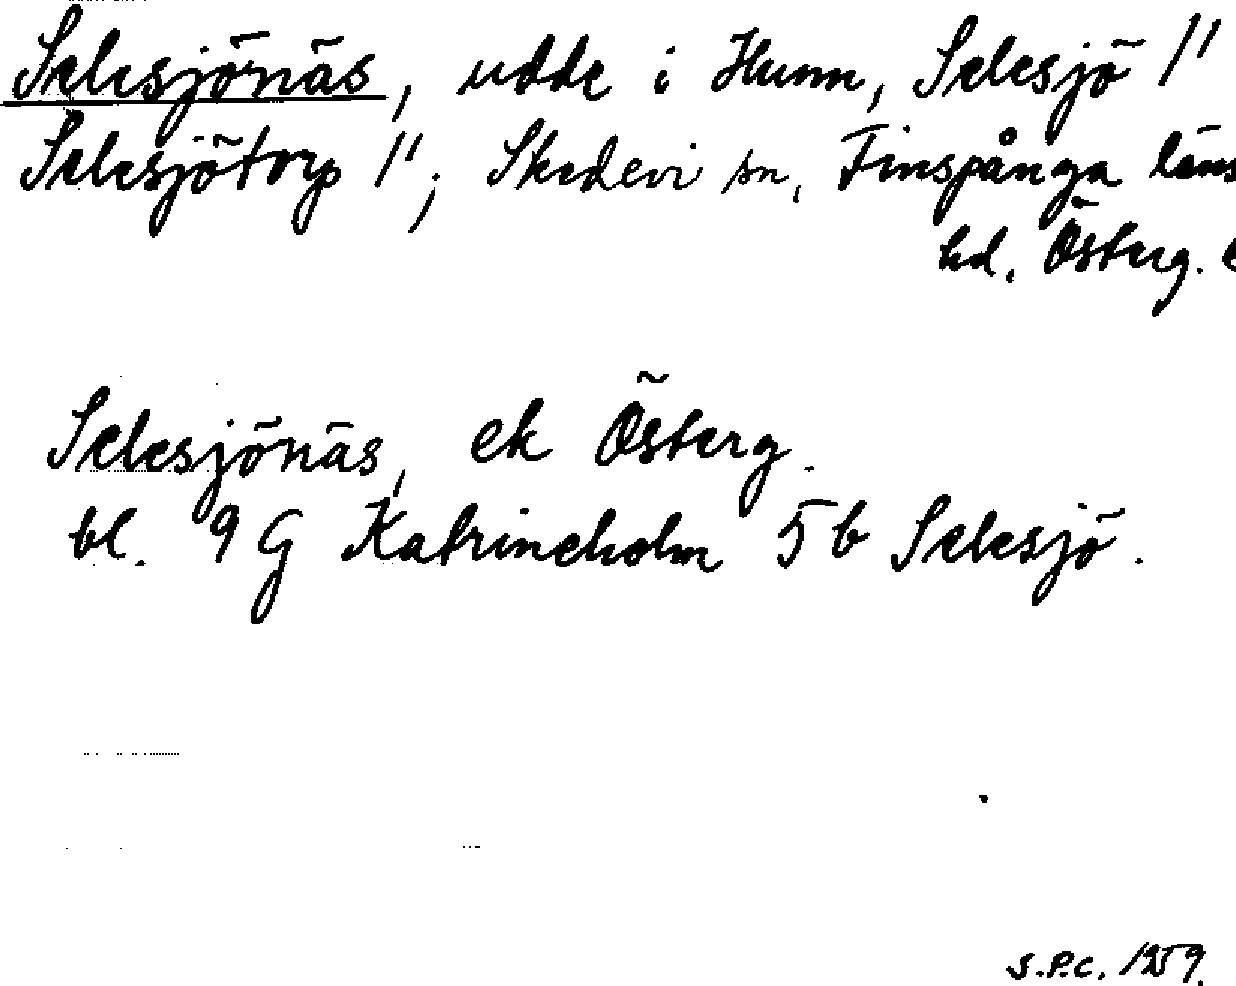 Selesjönäs, udde i Hunn, Selesjö 1/1
Selesjötorp 1/1; Skedevi sn, Finspånga läns
hd. Österg.
Selesjönäs, ek Österg.
bl. 9 G Katrineholm 5 b Selesjö.
S.P.C. 1959.